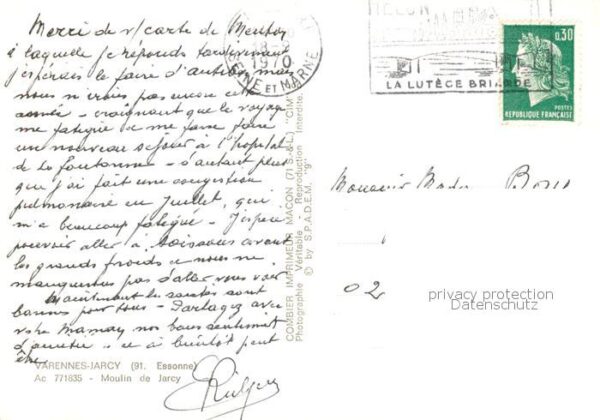 Merci de v/ carte de Menton
à laquelle je réponds tardivement
j'espérais le faire d'autant mais
nous n'irons pas encore cette
année - craignant que le voyage
me fatigue & me fasse faire
un nouveau séjour à l'hôpital
de la fontonne - d'autant plus
que j'ai fait une congestion
pulmonaire en Juillet, qui
m'a beaucoup fatigué - J'espère
pouvoir aller à Soissons avant
les grands froids & nous ne
manquerons pas d'aller vous voir
Maintenant les santés sont
bonnes pour tous - Partagez avec
votre Maman nos bons sentiments
d'amitié - & à bientôt peut
être
VARENNES-JARCY (91. Essonne)
Ac 771835 - Moulin de Jarcy
COMBIER IMPRIMEUR MACON (71 S.-&-L.) "CIM"
Photographie Véritable - Reproduction Interdite
© by S.P.A.D.E.M. "9"
1970
SEINE ET MARNE
MELUN
LA LUTÈCE BRIARDE
0,30
POSTES
REPUBLIQUE FRANÇAISE
Monsieur Madame
02
privacy protection
Datenschutz